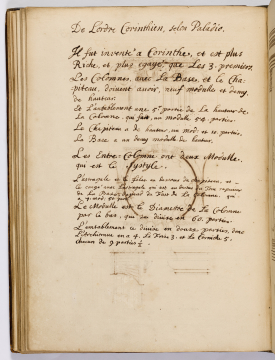 De Lordre Corinthien, selon Paladio.
Il fut inventé a Corinthe, et est plus
Riche, et plus egayé que Les 3. premiers
Les Colomnes, avec La Base, et le Cha-
piteau, doivent avoir, neuf module et demy,
de hauteur.
Et L'entablement une 5e. partie de La hauteur de
La Colomne, qui fait, un module 54. parties.
Le Chapiteau a de hauteur, un mod. et 10. parties.
La Base a un demy module de hauteur.
Les Entre-Colomne ont deux Modulle,
qui est le Systyle.
Le Modulle est le Diamettre de La Colomne
par le bas, qui se divise en 60. parties.
L'entablement se divise en douze parties, donc
L'Architrave en a 4. La Frise 3. et La Corniche 5.
chacun de 9 parties ½.